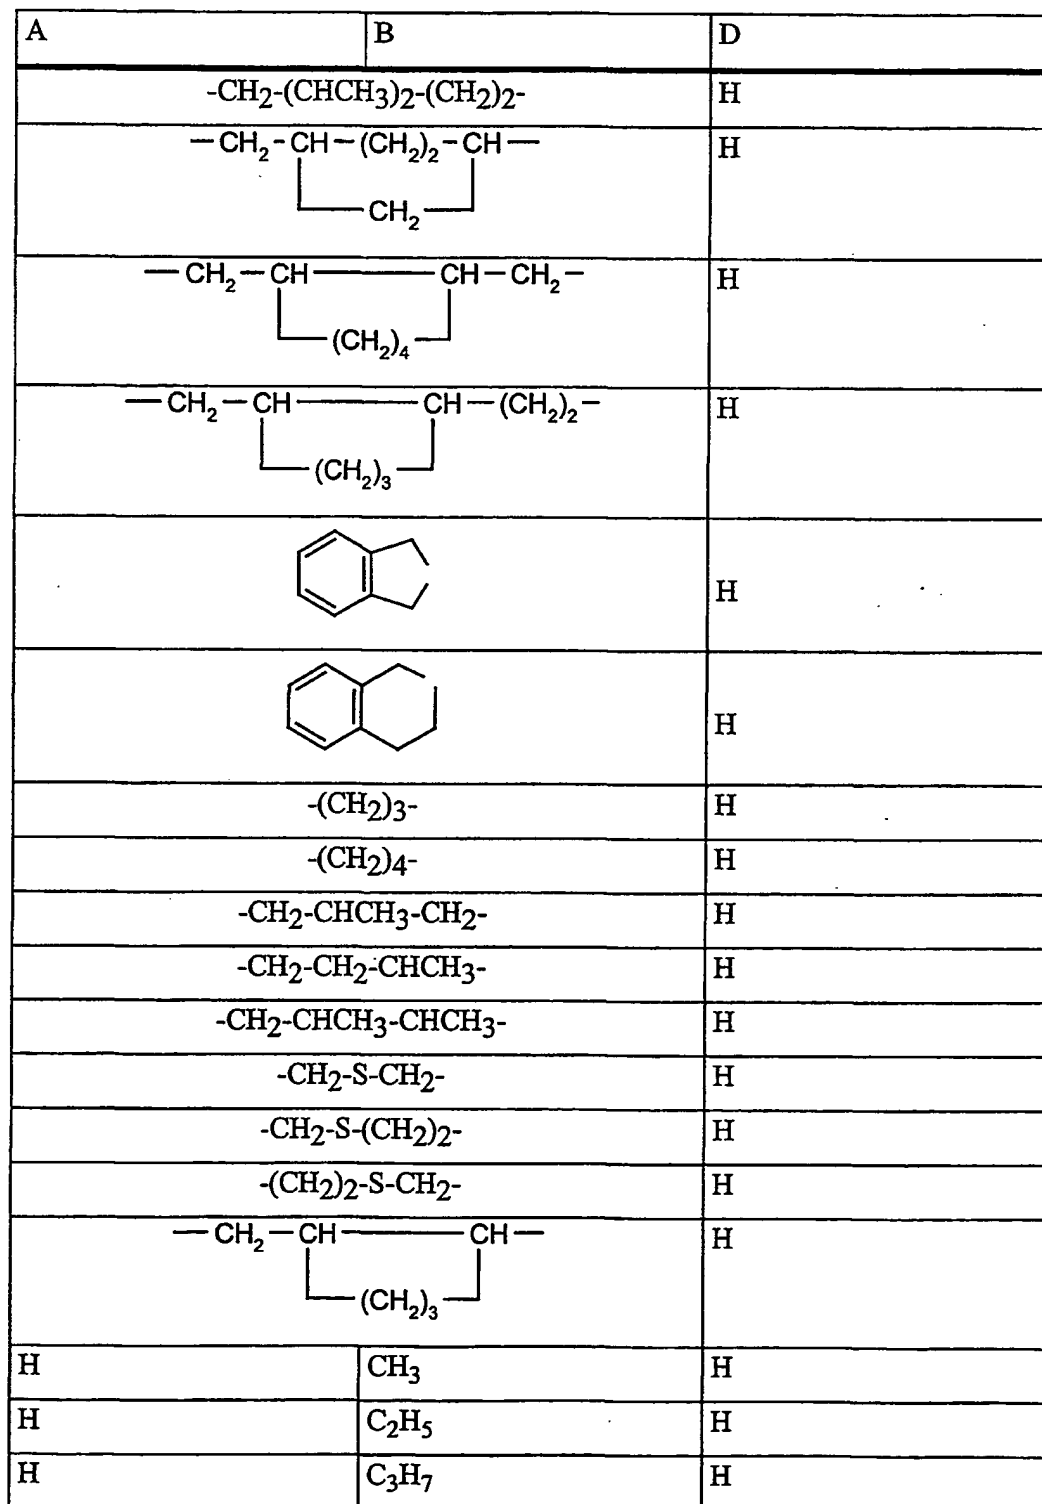 A B D
-CH2-(CHCH3)2-(CH2)2- H
—CH2-CH-(CH2)2-CH— H
CH2
—CH2—CH—CH—CH2— H
(CH2)4
—CH2—CH—CH—(CH2)2— H
(CH2)3
H
H
-(CH2)3- H
-(CH2)4- H
-CH2-CHCH3-CH2- H
-CH2-CH2-CHCH3- H
-CH2-CHCH3-CHCH3- H
-CH2-S-CH2- H
-CH2-S-(CH2)2- H
-(CH2)2-S-CH2- H
—CH2—CH—CH— H
(CH2)3
H CH3 H
H C2H5 H
H C3H7 H